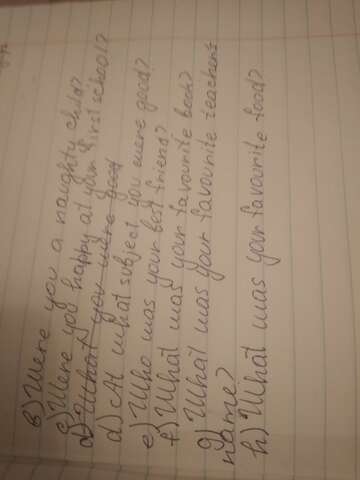 b) Were you a naughty child?
c) Were you happy at your first school?
d) What you were good
d) At what subject you were good?
e) Who was your best friend?
f) What was your favourite book?
g) What was your favourite teacher's
name?
h) What was your favourite food?